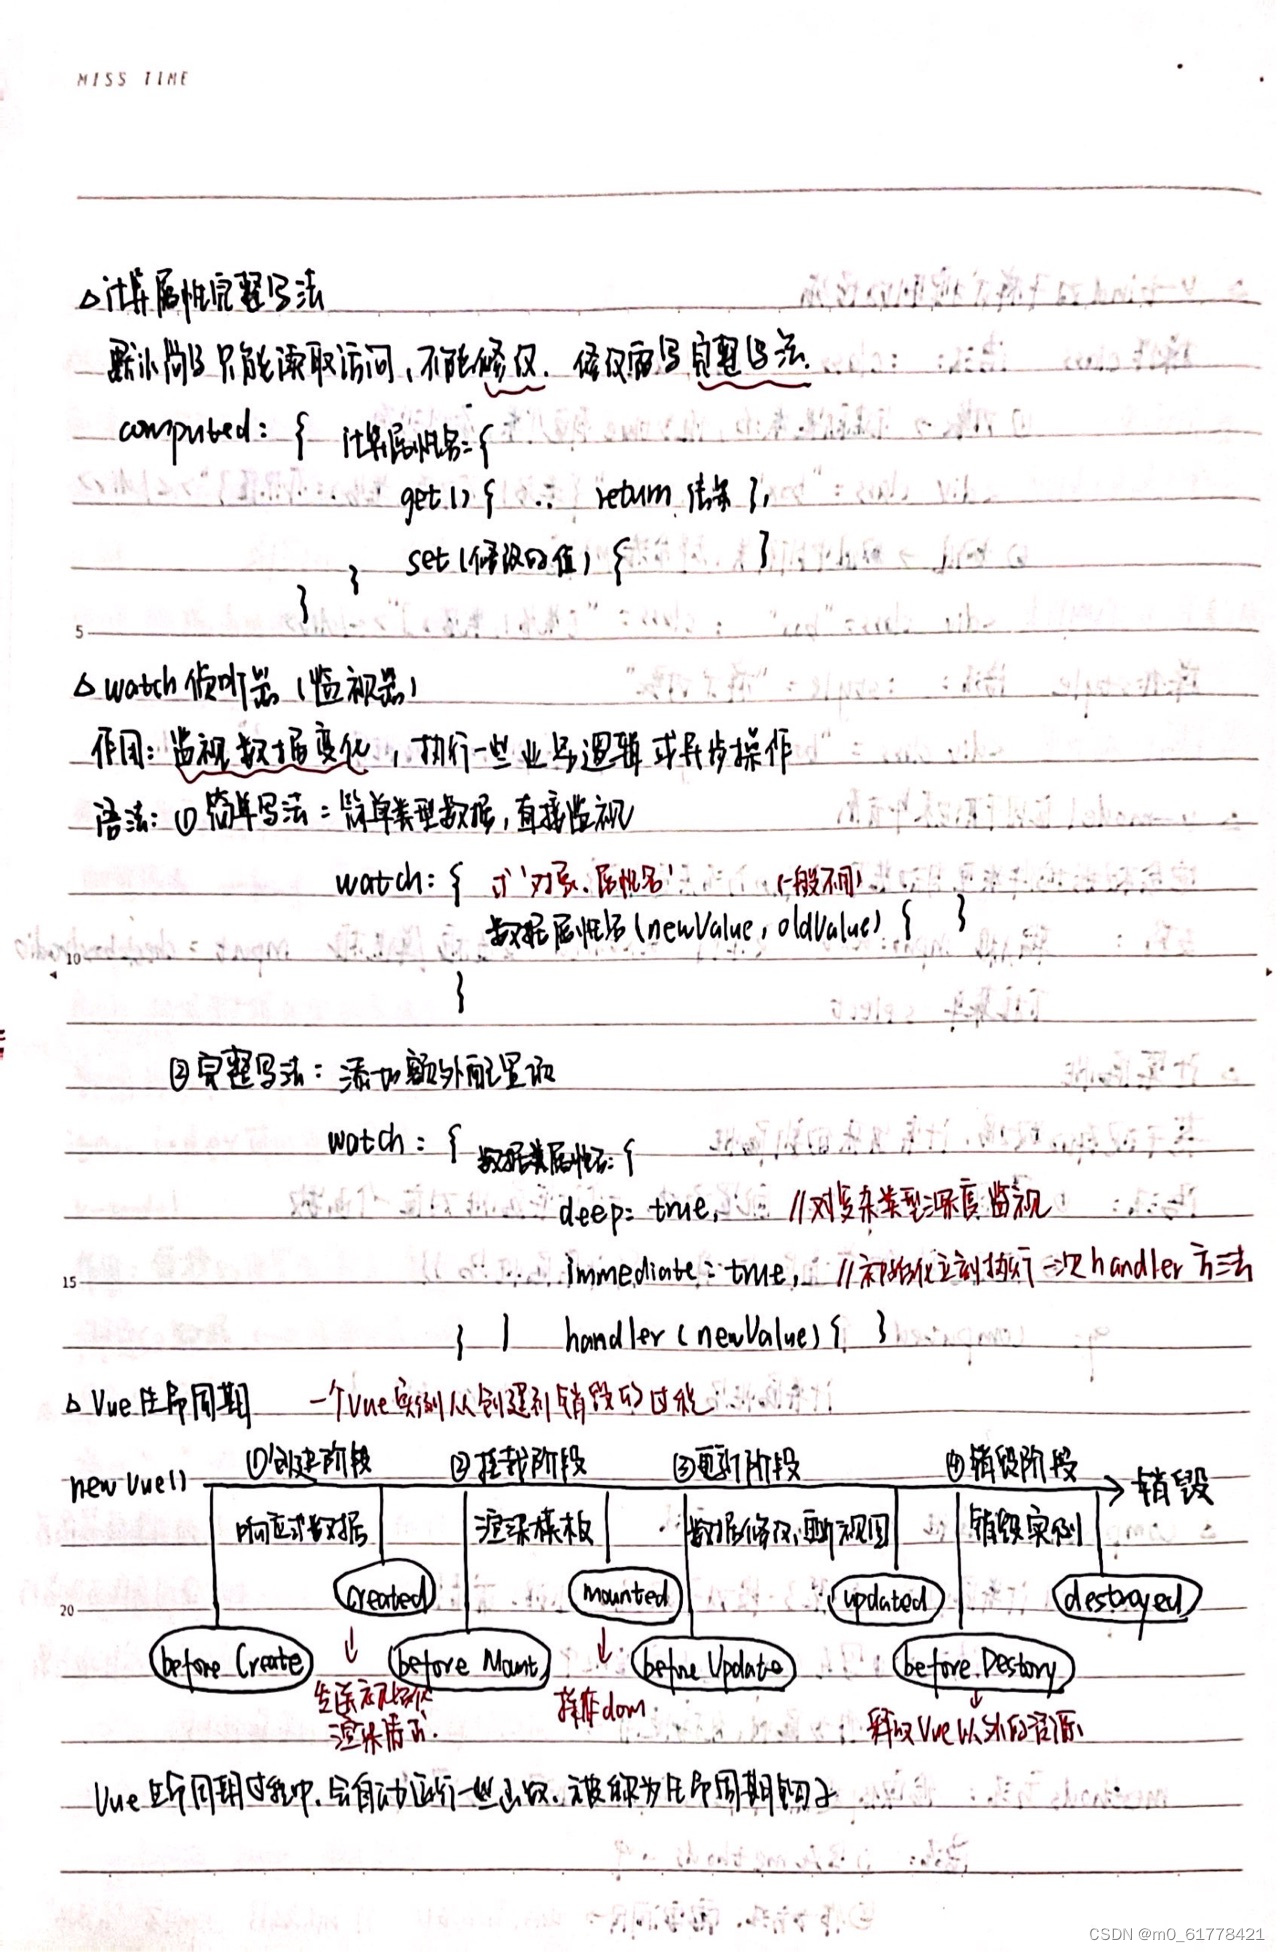 MISS TIME
△计算属性完整写法
默认简写只能读取访问，不能修改. 修改需写完整写法.
computed: { 计算属性名: {
get() { ... return 结果 },
set(修改的值) { }
}
}
5
△ watch 侦听器 (监视器)
作用: 监视数据变化, 执行一些业务逻辑或异步操作
语法: ① 简单写法: 简单类型数据, 直接监视
watch: { '对象.属性名' (一般不用)
数据属性名(newValue, oldValue) { }
10
}
②完整写法: 添加额外配置项
watch: { 数据属性名: {
deep: true, //对复杂类型深度监视
15 immediate: true, //初始化立刻执行一次handler方法
} } handler (newValue) { }
△ Vue生命周期 一个Vue实例从创建到销毁的过程
①创建阶段 ②挂载阶段 ③更新阶段 ④销毁阶段
new Vue() 销毁
响应式数据 渲染模板 数据修改,更新视图 销毁实例
created mounted updated destroyed
20
before Create before Mount before Update before.Destory
发送初始化 操作dom 释放Vue以外的资源
渲染请求.
Vue生命周期过程中, 会自动运行一些函数, 被称为生命周期钩子
CSDN @m0_61778421